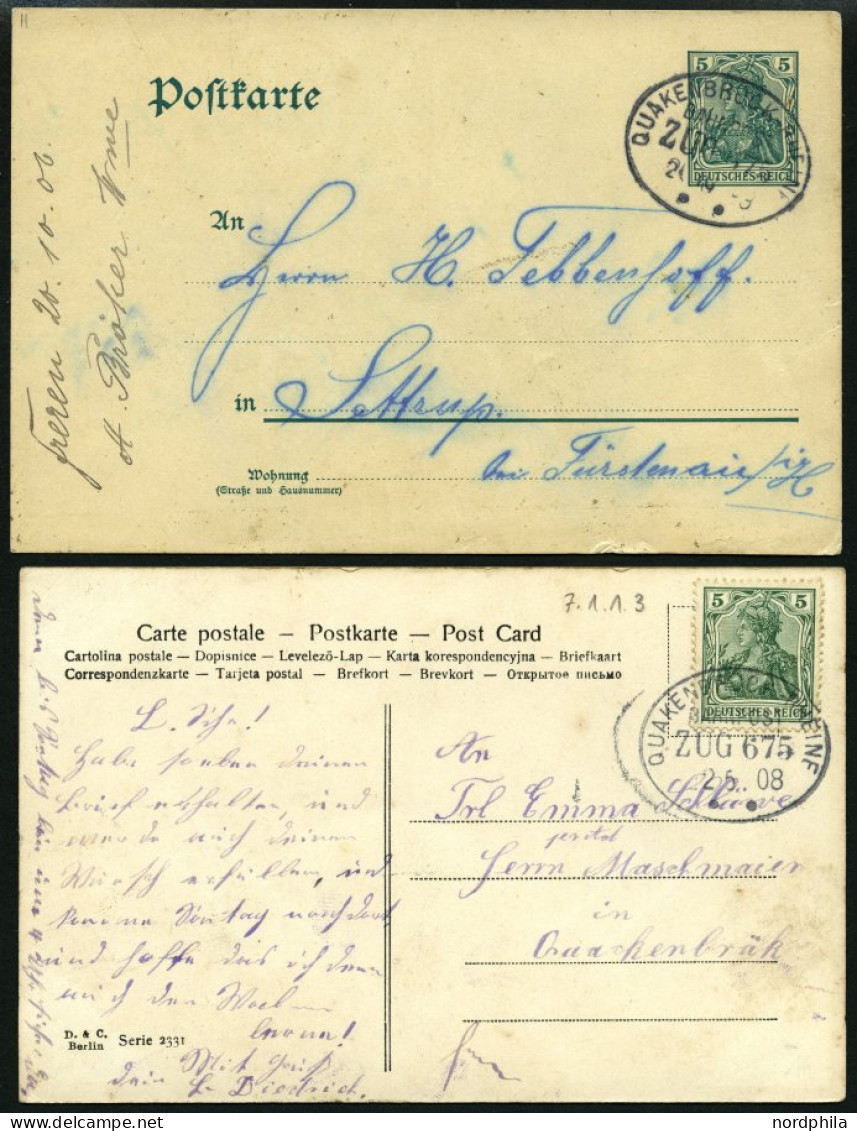 Postkarte
5 5
DEUTSCHES REICH
QUAKENBRÜCK RHEINE
ZUG
An
Herrn H. Tebbenhoff.
in Settrup.
bei Fürstenau i/H
Wohnung
(Straße und Hausnummer)
Freren 20.10.06.
A. Bröker Wwe
7.1.1.3
Carte postale – Postkarte – Post Card
Cartolina postale – Dopisnice – Levelező-Lap – Karta korespondencyjna – Briefkaart
Correspondenzkarte – Tarjeta postal – Brefkort – Brevkort – Открытое письмо
5 5
DEUTSCHES REICH
QUAKENBRÜCK RHEINE
BAHNPOST
ZUG 675
2 5. 08
Habe soeben deinen
Brief erhalten, und
werde auch deinen
Wunsch erfüllen, und
komme Sontag nach dort,
und hoffe das ich denn
lerne!
Mit Gruß
dein
Diedrich.
An
Frl Emma
Herrn Maschmaier
in
Quackenbrük
D. & C.
Berlin Serie 2331
nordphila